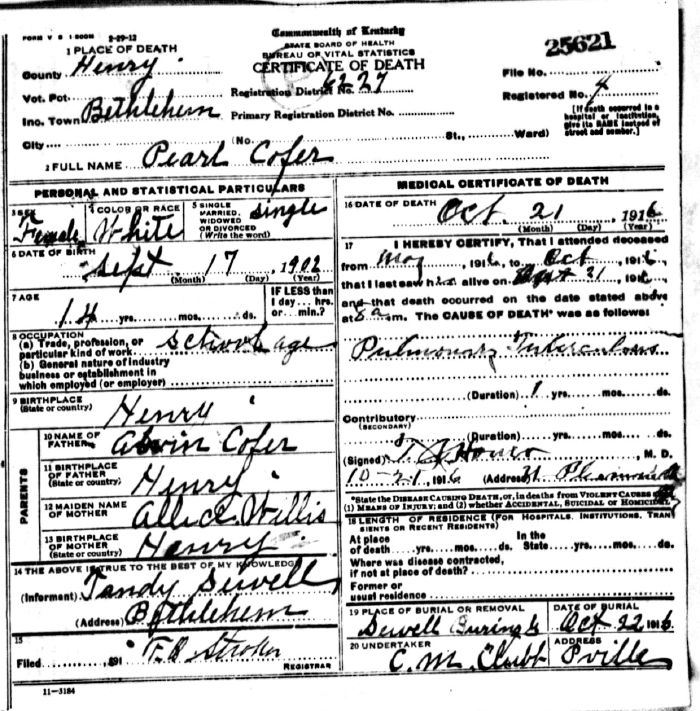 FORM V S 1 500M 2-29-12
Commonwealth of Kentucky
STATE BOARD OF HEALTH
BUREAU OF VITAL STATISTICS
CERTIFICATE OF DEATH
25621
1 PLACE OF DEATH
County Henry
Vot. Pct.
Inc. Town Bethlehem
City
Registration District No. 6227
Primary Registration District No.
(No. St., Ward)
File No.
Registered No. 4
[If death occurred in a hospital or institution, give its NAME instead of street and number.]
2 FULL NAME Pearl Cofer
PERSONAL AND STATISTICAL PARTICULARS
3 SEX Female
4 COLOR OR RACE White
5 SINGLE MARRIED, WIDOWED OR DIVORCED (Write the word) single
6 DATE OF BIRTH Sept 17, 1902
(Month) (Day) (Year)
7 AGE 14 yrs. mos. ds.
IF LESS than 1 day... hrs. or ... min.?
8 OCCUPATION
(a) Trade, profession, or particular kind of work School age
(b) General nature of industry business or establishment in which employed (or employer)
9 BIRTHPLACE (State or country) Henry
PARENTS
10 NAME OF FATHER Alvin Cofer
11 BIRTHPLACE OF FATHER (State or country) Henry
12 MAIDEN NAME OF MOTHER Allice Willis
13 BIRTHPLACE OF MOTHER (State or country) Henry
14 THE ABOVE IS TRUE TO THE BEST OF MY KNOWLEDGE
(Informant) Tandy Sewell
(Address) Bethlehem
15
Filed 191
REGISTRAR
11-3184
MEDICAL CERTIFICATE OF DEATH
16 DATE OF DEATH Oct. 21, 1916
(Month) (Day) (Year)
17 I HEREBY CERTIFY, That I attended deceased
from May, 1916, to Oct, 1916
that I last saw her alive on 21, 1916
and that death occurred on the date stated above
at 8a m. The CAUSE OF DEATH* was as follows:
Pulmonary Tuberculosis
(Duration) 1 yrs. mos. ds.
Contributory
(SECONDARY)
(Duration) yrs. mos. ds.
(Signed) M. D.
10-21, 1916 (Address)
*State the DISEASE CAUSING DEATH, or, in deaths from VIOLENT CAUSES
(1) MEANS OF INJURY; and (2) whether ACCIDENTAL, SUICIDAL OR HOMICIDAL
18 LENGTH OF RESIDENCE (FOR HOSPITALS, INSTITUTIONS, TRANSIENTS OR RECENT RESIDENTS)
At place of death yrs. mos. ds. In the State yrs. mos. ds.
Where was disease contracted, if not at place of death?
Former or usual residence
19 PLACE OF BURIAL OR REMOVAL Sewell
DATE OF BURIAL Oct 22 1916
20 UNDERTAKER C. M. Clubb
ADDRESS Pville